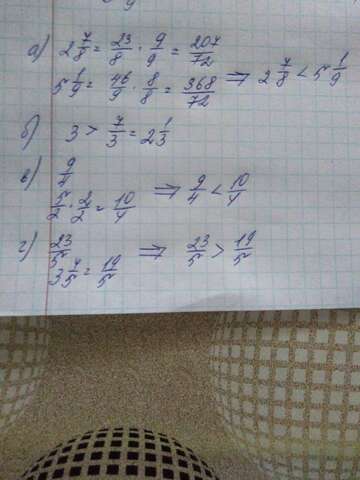 а) 2 7/8 = 23/8 · 9/9 = 207/72
5 1/9 = 46/9 · 8/8 = 368/72 ⇒ 2 7/8 < 5 1/9
б) 3 > 7/3 = 2 1/3
в) 9/4
5/2 · 2/2 = 10/4 ⇒ 9/4 < 10/4
г) 23/5 ⇒ 23/5 > 19/5
3 4/5 = 19/5